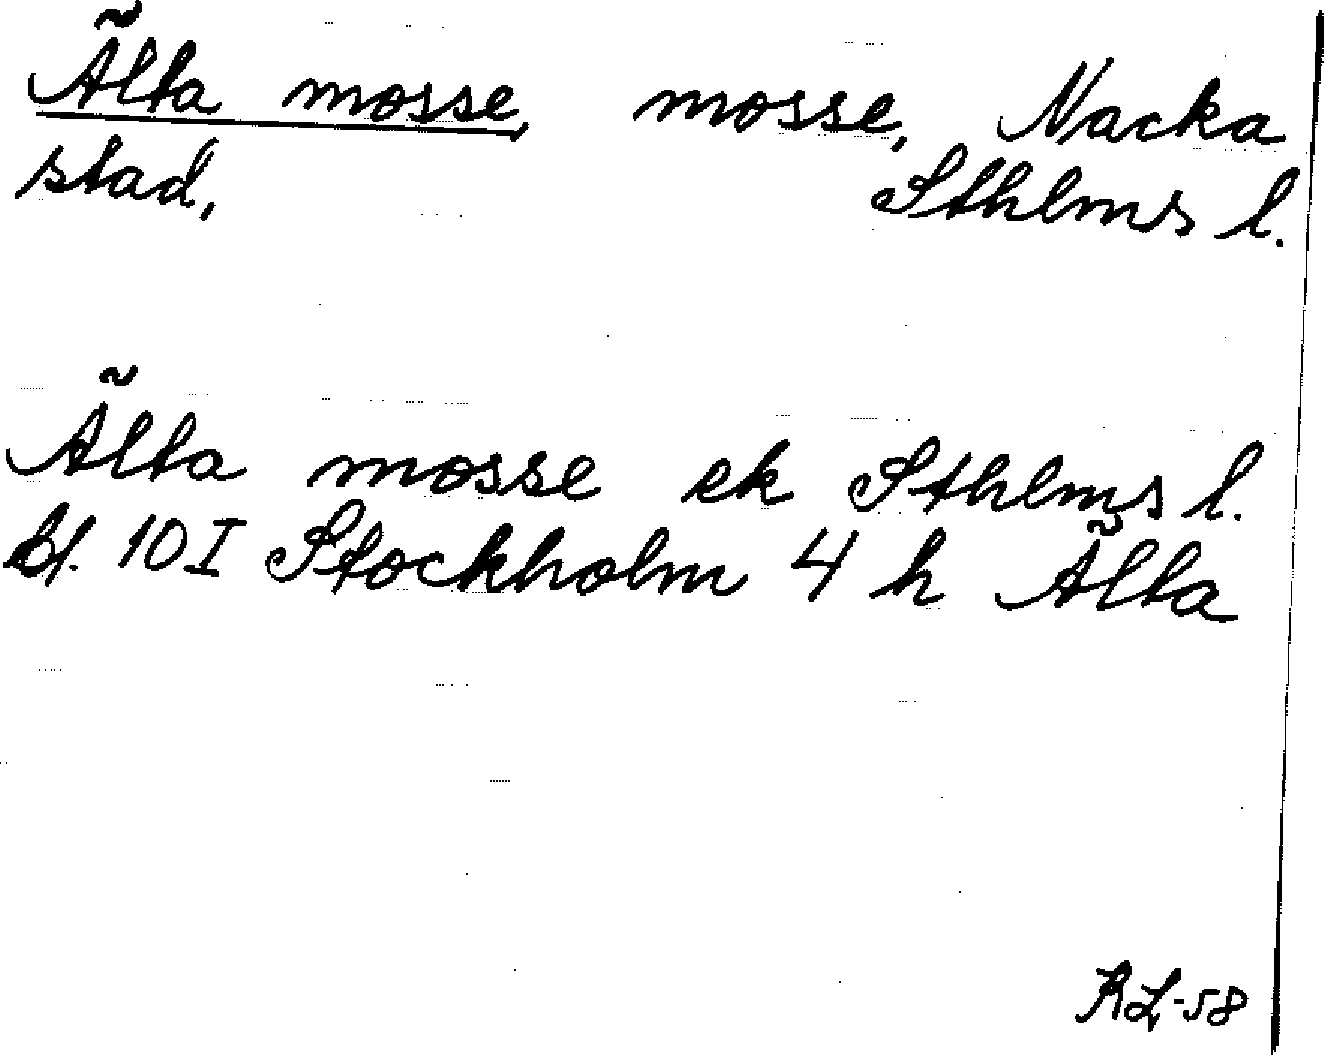 Älta mosse, mosse, Nacka
stad, Sthlms l.
Älta mosse ek Sthlms l.
bl. 10 I Stockholm 4 h Älta
RL-58